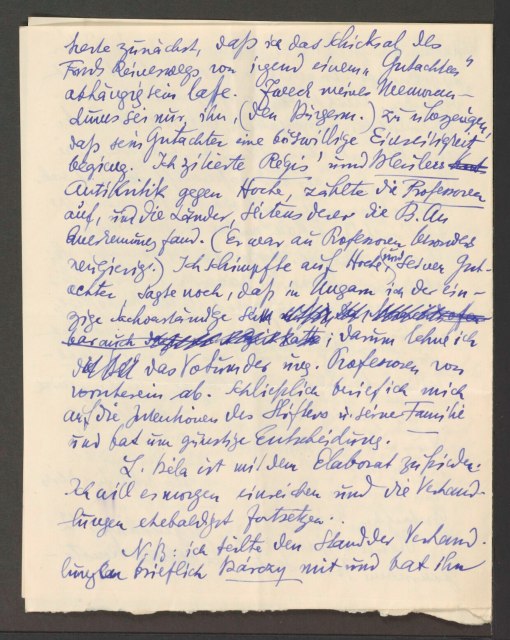 herte zunächst, daß ich das Schicksal des
Fonds keineswegs von irgend einem „Gutachten“
abhängig sein lasse. Zweck meines Memoran-
dums sei nur, ihn, (den Bürgerm.) zu überzeugen,
daß sein Gutachter eine böswillige Einseitigkeit
beging. Ich zitierte Régis' und Bleulers
Antikritik gegen Hoche, zählte die Professoren
auf, und die Länder, seitens derer die B. An
Anerkennung fand. (Er war an Professoren besonders
neugierig.) Ich schimpfte auf Hoche und seinen Gut-
achter, sagte noch, daß in Ungarn ich der ein-
zige Sachverständige sei
; darum lehne ich
das Votum der ung. Professoren von
vornherein ab. Schließlich berief ich mich
auf die Intentionen des Stifters u. seine Familie
und bat um günstige Entscheidung. —
L. Béla ist mit dem Elaborat zufrieden.
Ich will es morgen einreichen und die Verhand-
lungen ehebaldigst fortsetzen.
N.B: ich teilte den Stand der Verhand-
lungen brieflich Bárczy mit und bat ihn